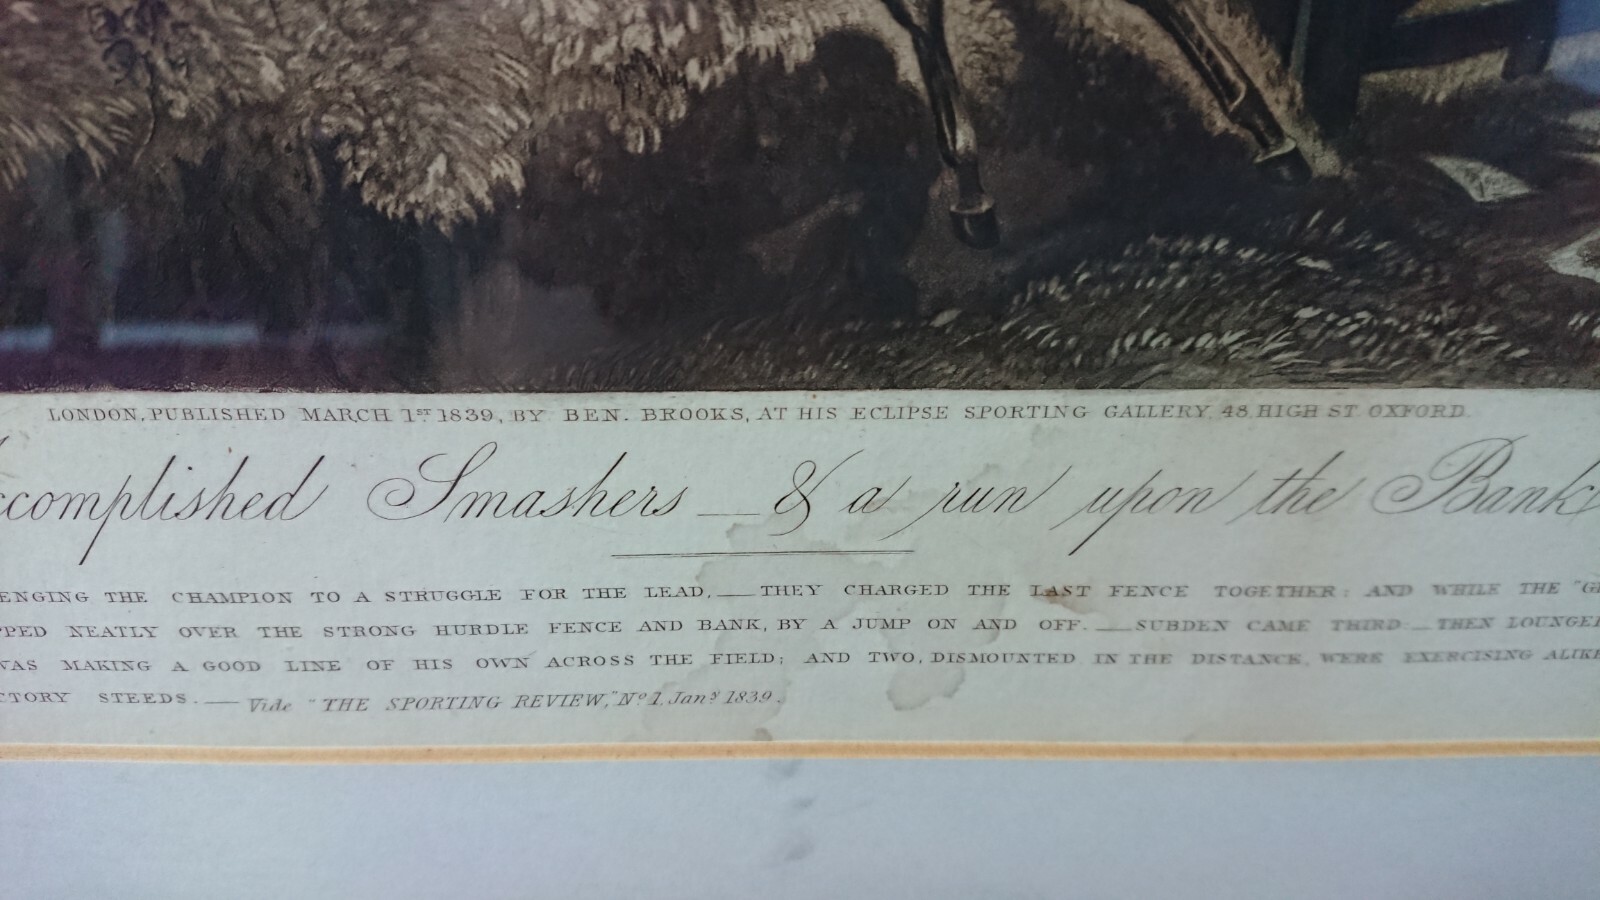 LONDON, PUBLISHED MARCH 1ST 1839, BY BEN. BROOKS, AT HIS ECLIPSE SPORTING GALLERY, 48, HIGH ST OXFORD.
ccomplished Smashers — & a run upon the Bank
ENGING THE CHAMPION TO A STRUGGLE FOR THE LEAD, — THEY CHARGED THE LAST FENCE TOGETHER: AND WHILE THE "G
PPED NEATLY OVER THE STRONG HURDLE FENCE AND BANK, BY A JUMP ON AND OFF. — SUBDEN CAME THIRD — THEN LOUNGE
WAS MAKING A GOOD LINE OF HIS OWN ACROSS THE FIELD; AND TWO, DISMOUNTED IN THE DISTANCE, WERE EXERCISING ALIKE
CTORY STEEDS. — Vide "THE SPORTING REVIEW," No 1, Jany 1839.